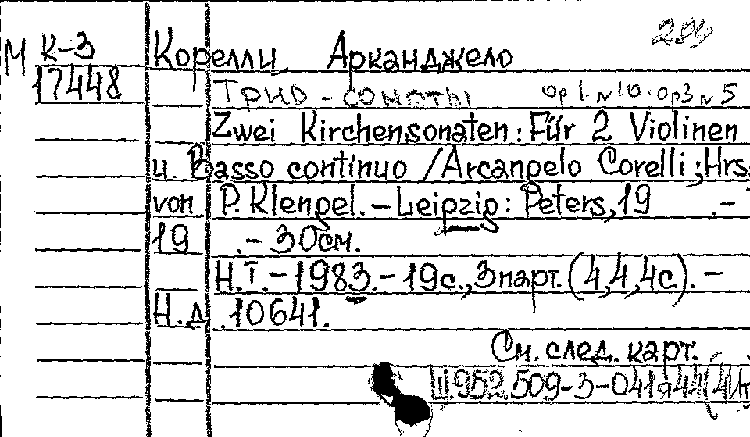 289
М К-3 Корелли Арканджело
17448 Трио-сонаты op 1. № 10. op 3 № 5
Zwei Kirchensonaten: Für 2 Violinen
u. Basso continuo / Arcangelo Corelli; Hrs.
von P. Klengel. – Leipzig: Peters, 19 . –
19 . – 30 см.
Н.Т. – 1983. – 19 с., 3 парт. (4, 4, 4 с). –
Н.д. 10641.
См. след. карт.
Ш.952.509-3-041